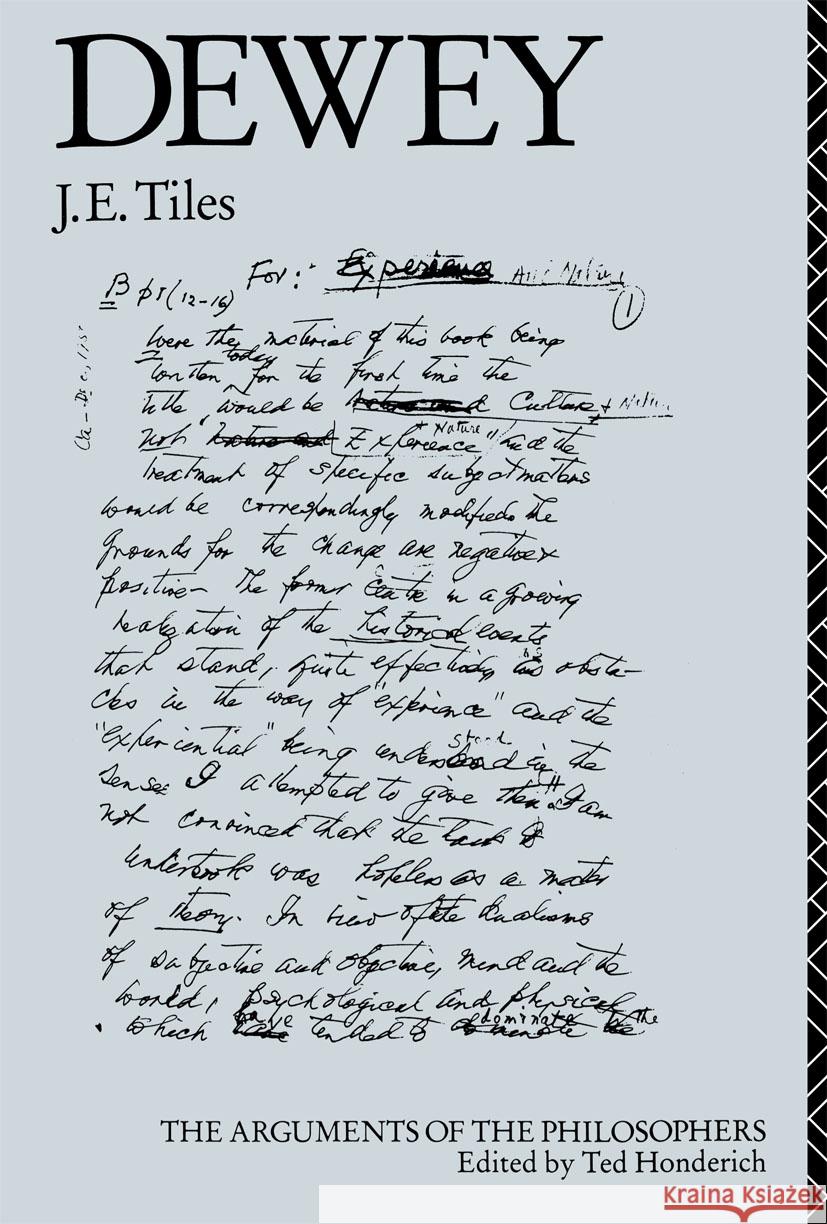 DEWEY
J.E. Tiles
For: Experience And Nature
B pt (12-16)
1
Were the material of this book being
written today for the first time the
title would be Culture + Nature
not "Experience + Nature" and the
treatment of specific subject matters
would be correspondingly modified. The
grounds for the change are negative &
positive— The former centre in a growing
realization of the historical events
that stand, quite effectively as obsta-
cles in the way of "experience" and the
"experiential" being understood in the
sense I attempted to give them. I am
not convinced that the task I
undertook was hopeless as a matter
of theory. In view of the dualisms
of subjective and objective, mind and the
world, psychological and physical
which have tended to dominate the
THE ARGUMENTS OF THE PHILOSOPHERS
Edited by Ted Honderich
kraina książek